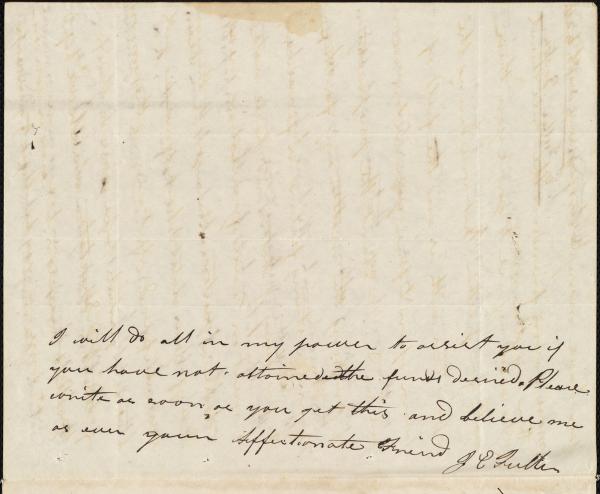 I will do all in my power to assist you if
you have not attained the funds desired. Please
write as soon as you get this and believe me
as ever your Affectionate Friend
J E Fuller